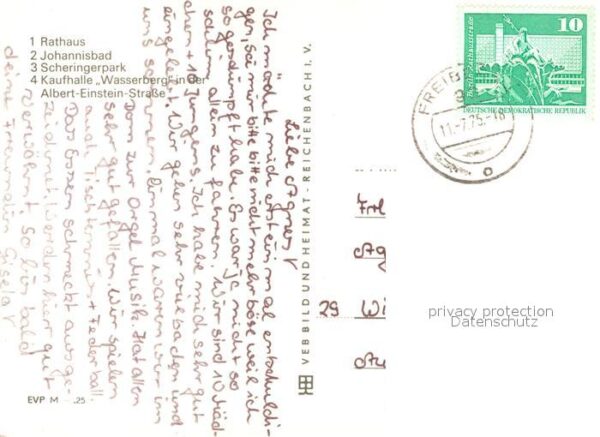 1 Rathaus
2 Johannisbad
3 Scheringerpark
4 Kaufhalle „Wasserberg“ in der
Albert-Einstein-Straße
Liebe Agnes!
Ich möchte mich erst ein mal entschuldi-
gen, sei mir bitte bitte nicht mehr böse weil ich
so geschimpft habe. Es war ja nicht so
schlimm allein zu fahren. Wir sind 10 Mäd-
chen + 10 Jungens. Ich habe mich sehr gut
eingelebt. Wir gehen sehr viel baden und
uns sonnen. Einmal waren wir im
Dom zur Orgel Musik. Hat allen
sehr gut gefallen. Wir spielen
auch Tischtennis + Federball.
Das Essen schmeckt ausge-
zeichnet. Werden hier gut
verwöhnt. So bis bald
deine Freundin Gisela!
EVP M -.25
VEB BILD UND HEIMAT · REICHENBACH I. V.
10
DEUTSCHE DEMOKRATISCHE REPUBLIK
11.-7.75.-18
Frl
Ag
29 Wi
privacy protection
Datenschutz